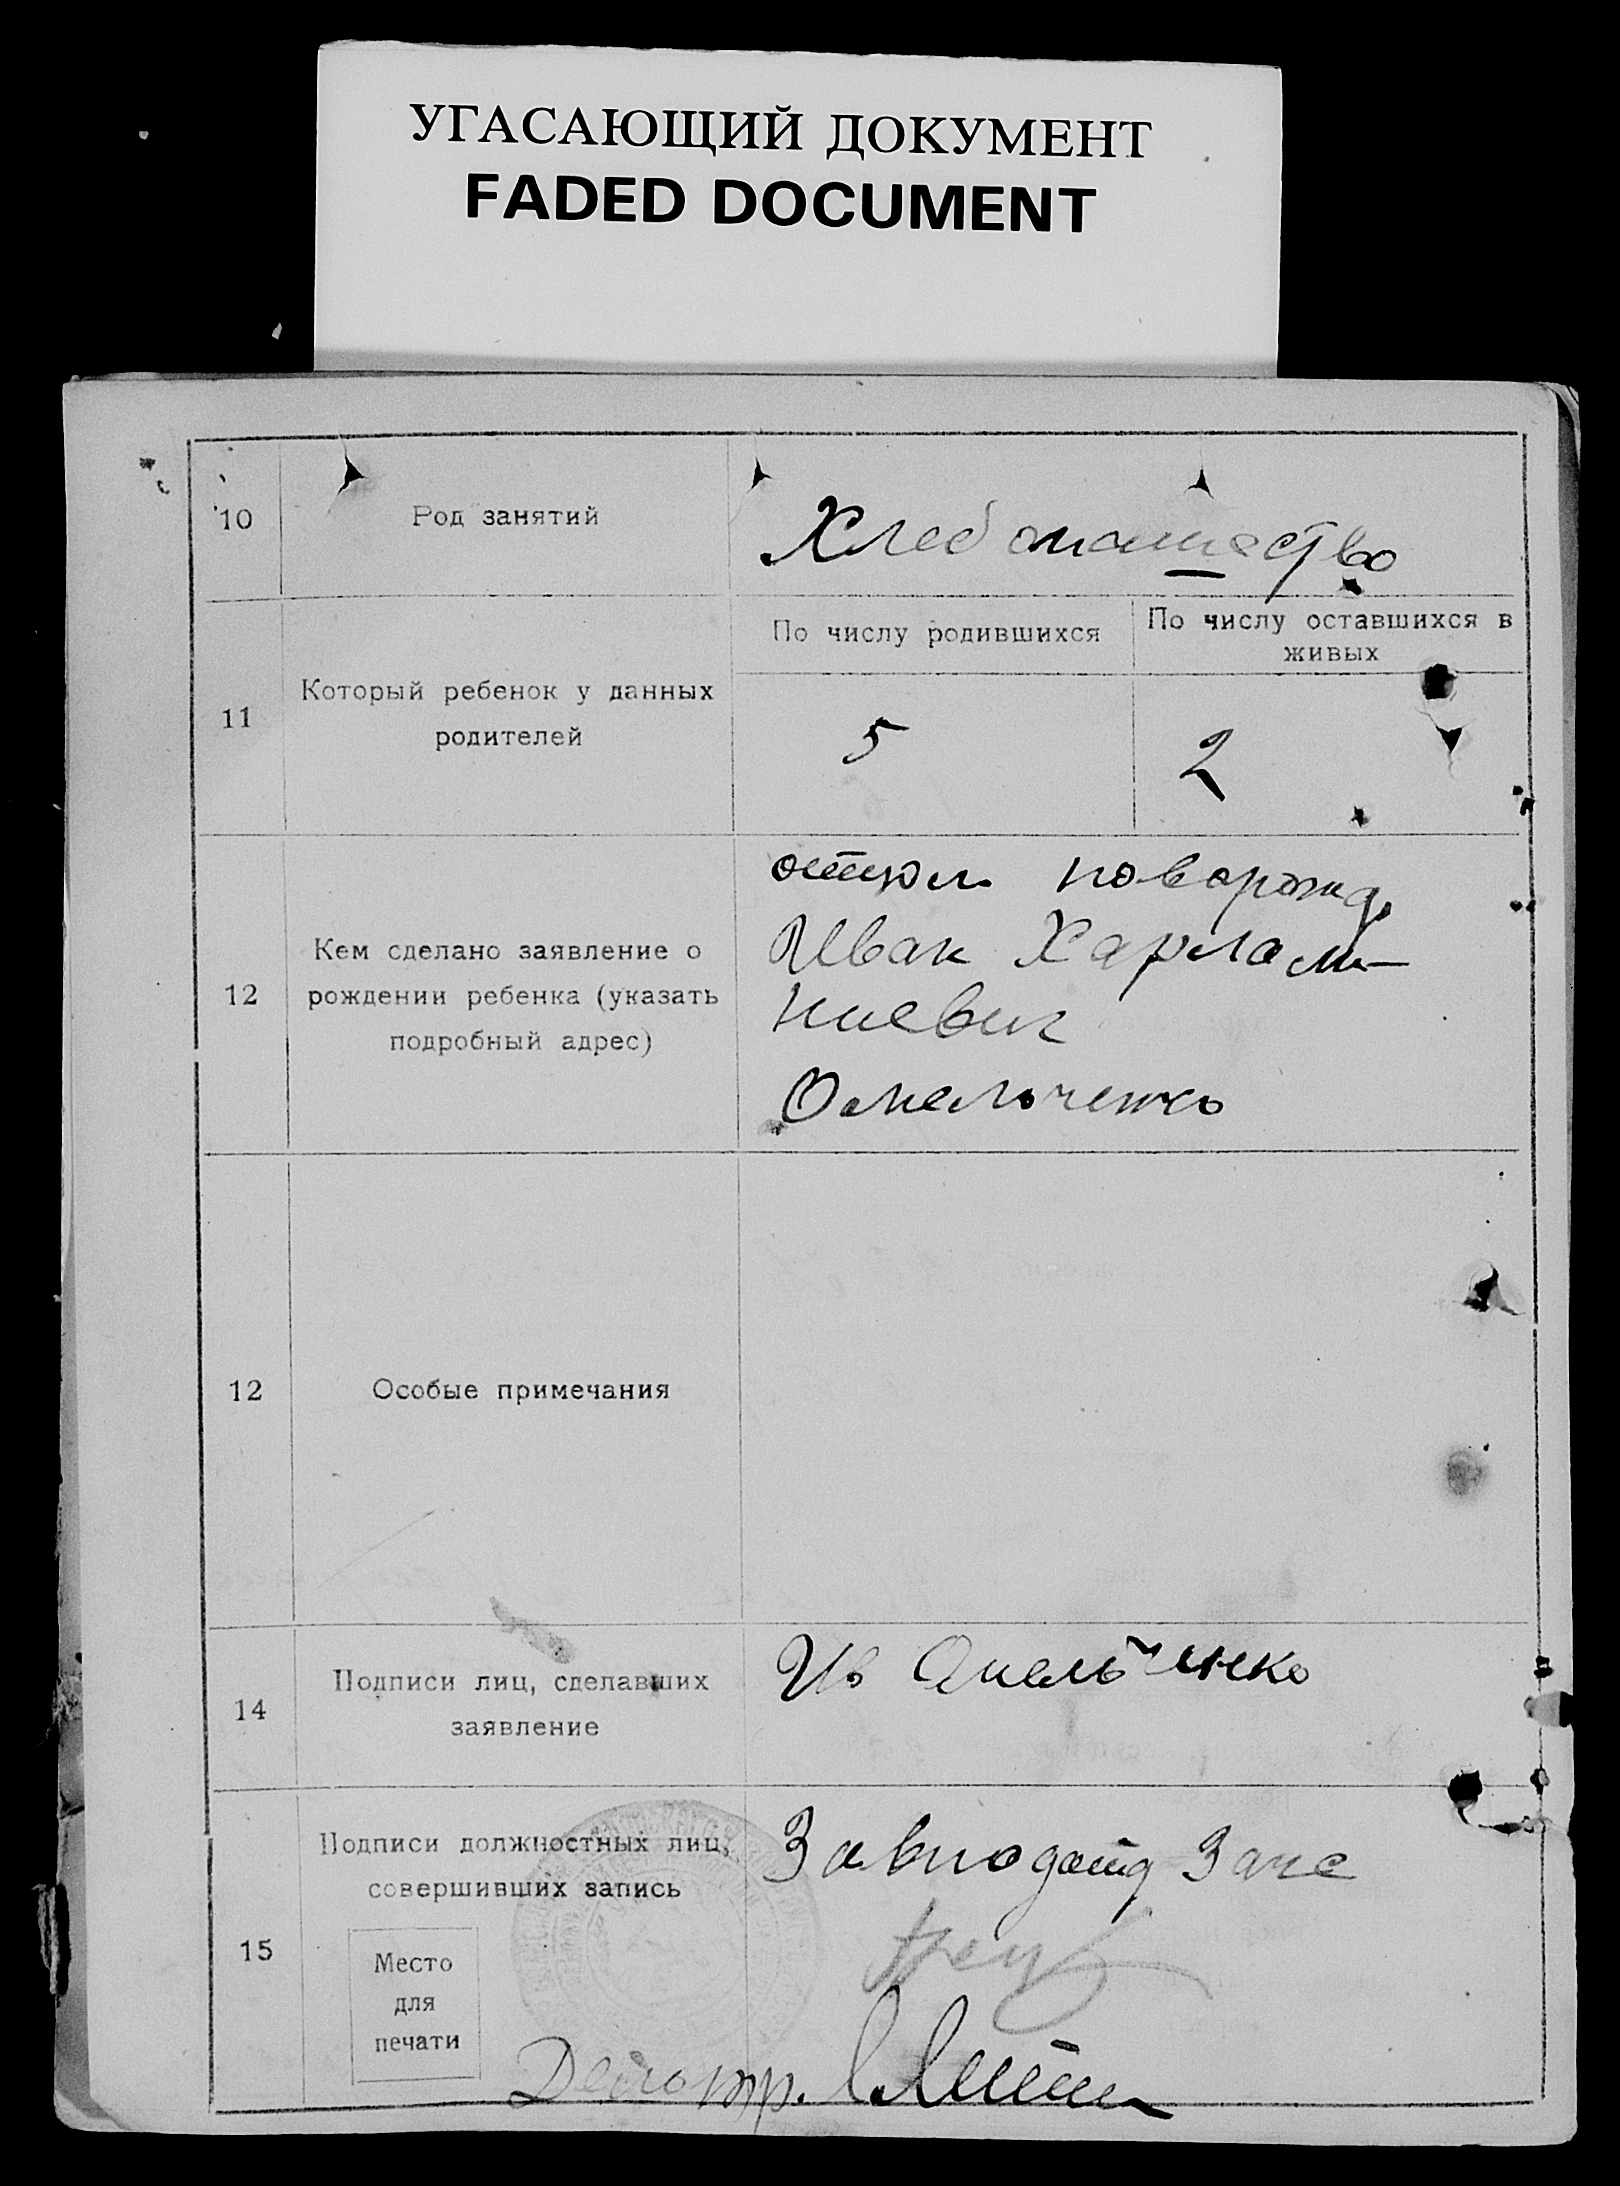 УГАСАЮЩИЙ ДОКУМЕНТ
FADED DOCUMENT
10
Род занятий
Хлебопашество
11
Который ребенок у данных
родителей
По числу родившихся
По числу оставшихся в
живых
5
2
12
Кем сделано заявление о
рождении ребенка (указать
подробный адрес)
отцом новорожд.
Иван Харлам-
Омельченко
12
Особые примечания
14
Подписи лиц, сделавших
заявление
Ив Омельченко
15
Подписи должностных лиц,
совершивших запись
Место
для
печати
Завподотд Загс
Делопр.